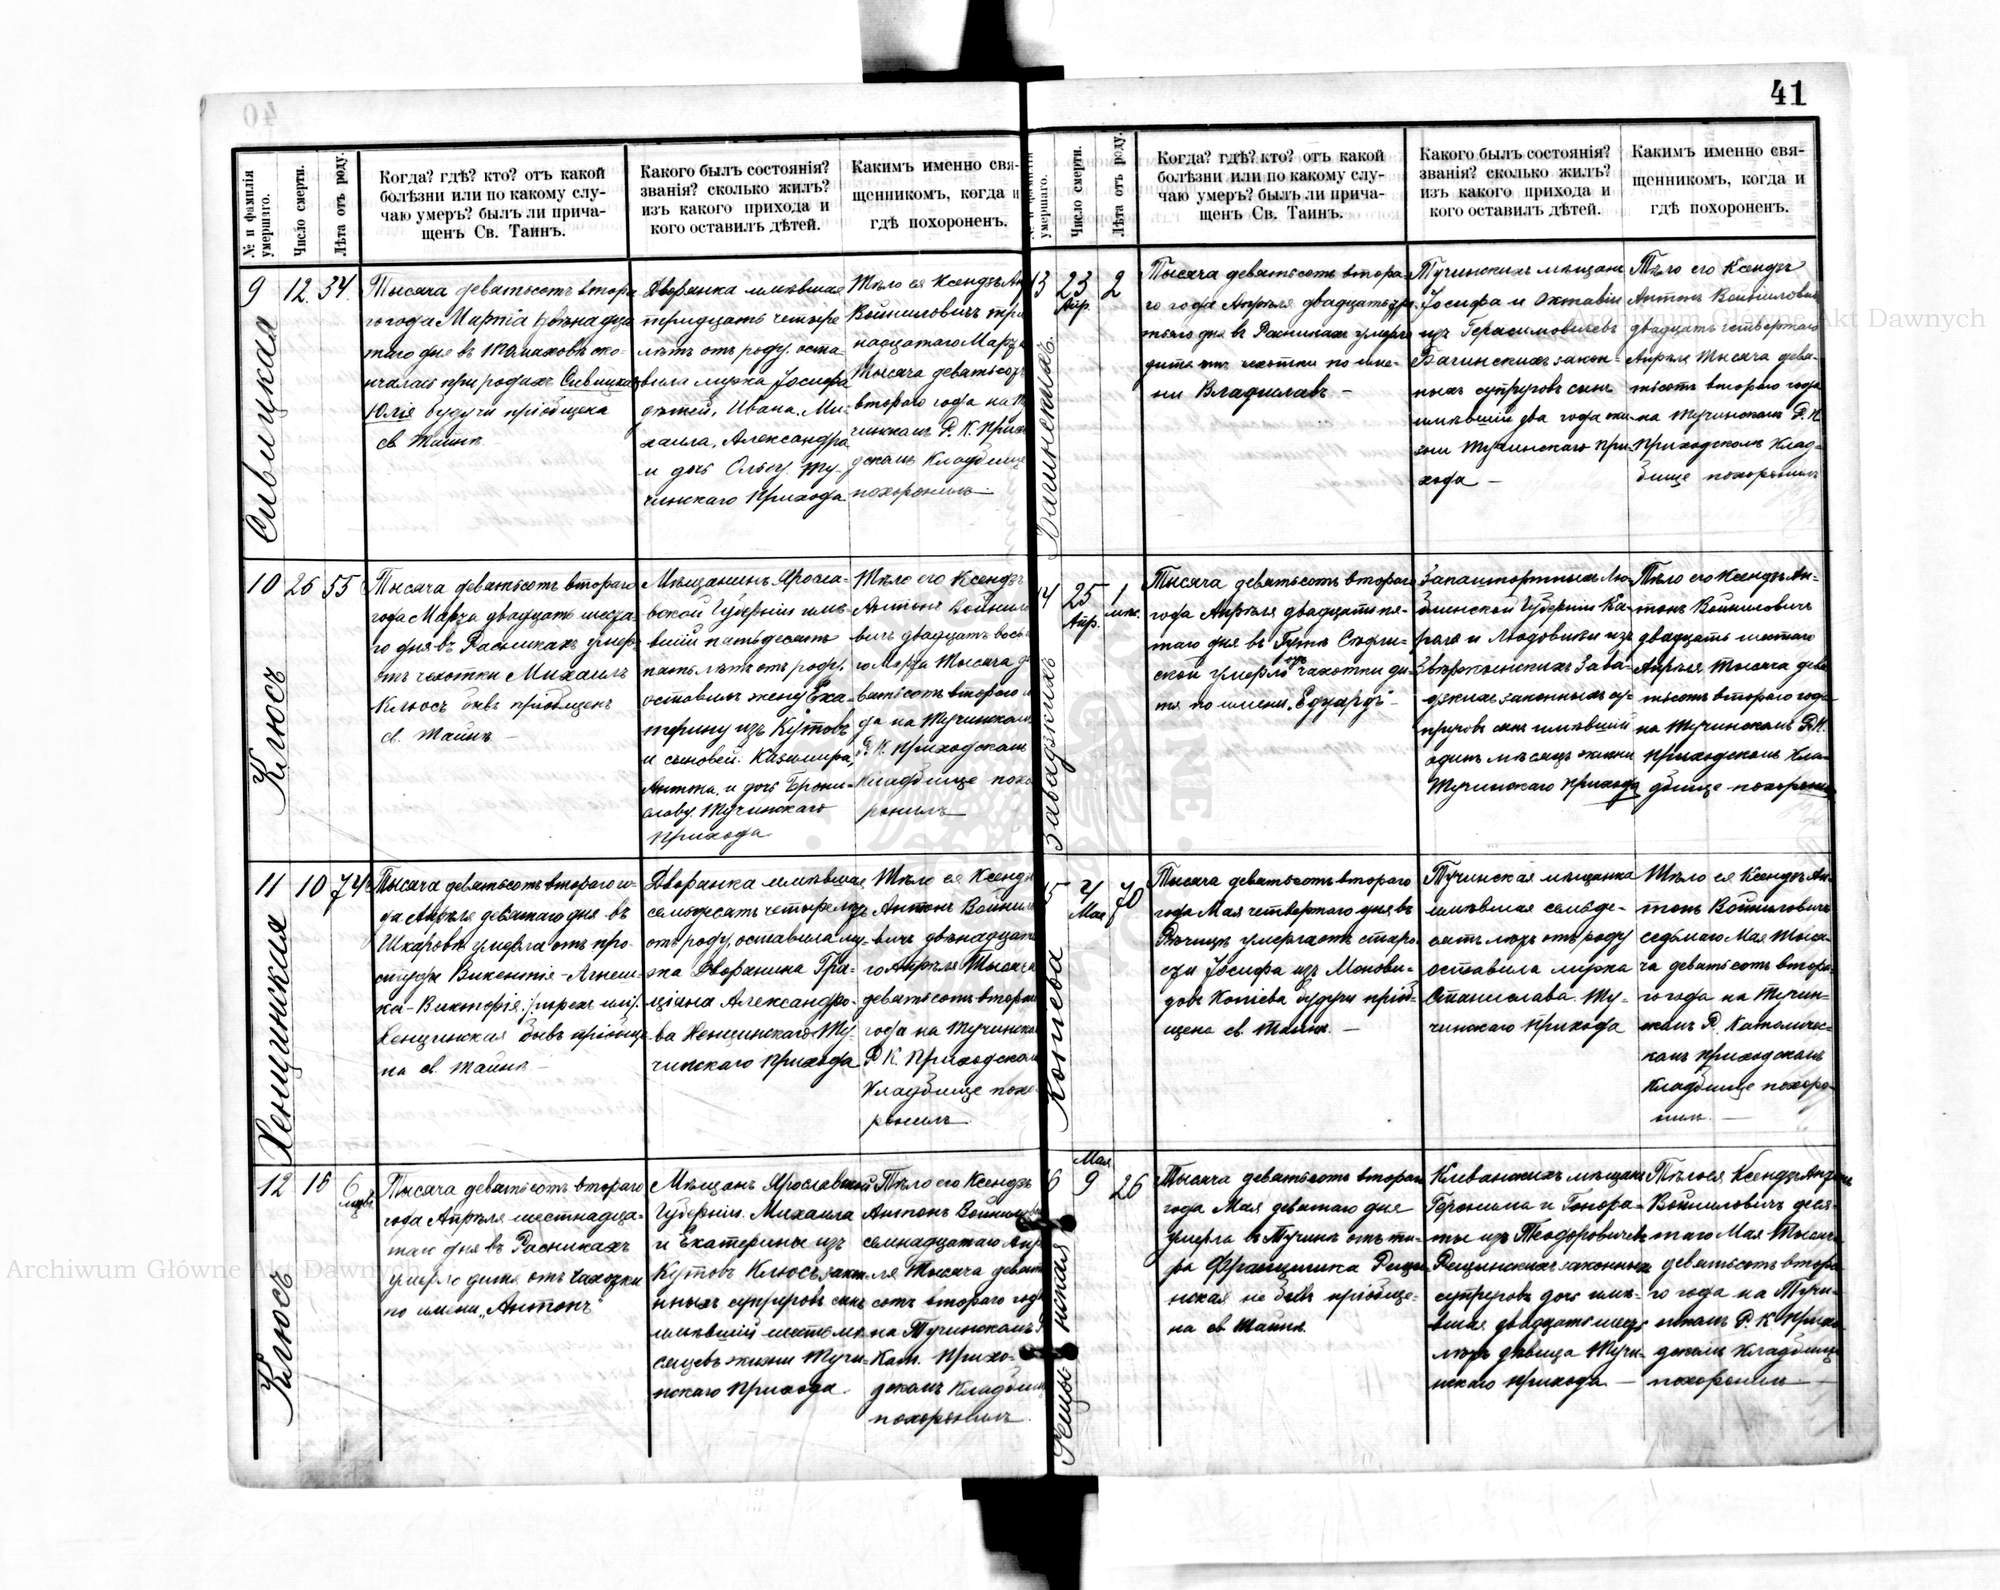 41
№ и фамилія умершаго.
Число смерти.
Лѣта отъ роду.
Когда? гдѣ? кто? отъ какой
болѣзни или по какому слу-
чаю умеръ? былъ ли прича-
щенъ Св. Таинъ.
Какого былъ состоянія?
званія? сколько жилъ?
изъ какого прихода и
кого оставилъ дѣтей.
Каким​ъ именно свя-
щенникомъ, когда и
гдѣ похороненъ.
9
Сивицкая
12
34
Тысяча девятьсотъ втора
го года Марта
таго дня въ
нчалась при родахъ Сивицкая
Юлія будучи пріобщена
св. Тайнъ
Дворянка имѣвшая
тридцать четыре
лѣтъ отъ роду. оста-
вила мужа Іосифа
дѣтей, Ивана, Ми-
хаила, Александра
и дочь Ольгу. Ту-
чинскаго прихода
Тѣло ея Ксендзъ Ан
Войниловичъ три
надцатаго Марта
Тысяча девятьсотъ
втораго года на Ту
чинскомъ Р. К. Прихо
дскомъ Кладбище
похоронилъ
10
Клюсъ
26
55
Тысяча девятьсотъ втораго
года Марта двадцать шеста-
го дня въ Расникахъ умеръ
отъ чахотки Михаилъ
Клюсъ бывъ пріобщенъ
св. Тайнъ
Мѣщанинъ Яросла-
вской Губерніи имѣ-
вшій пятьдесятъ
пять лѣтъ отъ роду.
оставилъ жену Ека-
терину изъ Кутовъ
и сыновей. Казимира,
Антона, и дочь Брони-
славу. Тучинскаго
прихода
Тѣло его Ксендзъ
Антонъ Войнило
вичъ двадцать вось
го Марта Тысяча де
вятьсотъ втораго
да на Тучинскомъ
Р. К. Приходскомъ
Кладбище похо
ронилъ
11
Хенцинская
10
74
Тысяча девятьсотъ втораго го-
да Апрѣля девятаго дня въ
Шкаровѣ умерла отъ про-
студы Викентія-Агнеш-
ка-Викторія (трехъ им).
Хенцинская бывъ пріобще
на св. Тайнъ
Дворянка имѣвшая
семьдесятъ четыре лѣтъ
отъ роду, оставила му-
жа Дворянина Гра-
ціана Александро-
ва Хенцинскаго Ту-
чинскаго прихода
Тѣло ея Ксендзъ
Антонъ Войнило
вичъ двѣнадцата
го Апрѣля Тысяча
девятьсотъ втораго
года на Тучинско
Р. К. Приходском
Кладбище похо
ронилъ
12
Клюсъ
16
6
мѣс.
Тысяча девятьсотъ втораго
года Апрѣля шестнадца-
таго дня въ Расникахъ
умерло дитя отъ чахотки
по имени „Антонъ“
Мѣщанъ Ярославской
Губерніи. Михаила
и Екатерины изъ
Кутовъ Клюсъ зако
нныхъ супруговъ сынъ
имѣвшій шесть мѣ
сяцевъ жизни Тучи-
нскаго прихода
Тѣло его Ксендзъ
Антонъ Войнилови
семнадцатаго Апр
ля Тысяча девять
сотъ втораго года
на Тучинскомъ Р
Кат. Прихо-
дскомъ Кладбище
похоронилъ
13
23
Апр.
2
Тысяча девятьсотъ втора-
го года Апрѣля двадцать тре
тьяго дня въ Расникахъ умерло
дитя отъ чахотки по име-
ни Владиславъ
Тучинскихъ мѣщанъ
Іосифа и Октавіи
изъ Герасимовичевъ
Бачинскихъ закон-
ныхъ супруговъ сынъ
имѣвшій два года жи-
зни Тучинскаго При-
хода
Тѣло его Ксендзъ
Антонъ Войнилович
двадцать четвертаго
Апрѣля Тысяча девя-
тьсотъ втораго года
на Тучинскомъ Р. К.
Приходскомъ Клад-
бище похоронилъ
14
Завадзкихъ
25
Апр.
1
мѣс.
Тысяча девятьсотъ втораго
года Апрѣля двадцати пя-
таго дня въ Гутѣ
ской умерло отъ чахотки ди-
тя по имени „Едуардъ“
Запаспортныхъ Лю-
блинской Губерніи Ка-
роля и Людовики изъ
Зава-
дзкихъ законныхъ су-
пруговъ сынъ имѣвшій
одинъ мѣсяцъ жизни
Тучинскаго прихода
Тѣло его Ксендзъ Ан-
тонъ Войниловичъ
двадцать шестаго
Апрѣля Тысяча девя
тьсотъ втораго года
на Тучинскомъ Р. К.
Приходскомъ Кла-
дбище похоронилъ
15
Копіева
4
Мая
70
Тысяча девятьсотъ втораго
года Мая четвертаго дня въ
Речицѣ умерла отъ старо-
сти Іосифа изъ
Копіева будучи пріоб-
щена св. Тайнъ.
Тучинская мѣщанка
имѣвшая семьде-
сятъ лѣтъ отъ роду
оставила мужа
Станислава. Ту-
чинскаго прихода
Тѣло ея Ксендзъ Ан-
тонъ Войниловичъ
седьмаго Мая Тыся-
ча девятьсотъ втора-
го года на Тучин-
скомъ Р. Католичес-
комъ приходскомъ
Кладбище похоро-
нилъ.
16
Мая
9
26
Тысяча девятьсотъ втораго
года Мая девятаго дня
умерла въ Тучинѣ отъ ти-
фа Францишка Рещи
нская не бывъ пріобще-
на св. Тайнъ.
Клеванскихъ мѣщанъ
Геронима и Гонора-
ты изъ Теодоровичевъ
Рещинскихъ законныхъ
супруговъ дочь имѣ-
вшая двадцать шесть
лѣтъ дѣвица Тучи-
нскаго прихода
Тѣло ея Ксендзъ Антонъ
Войниловичъ деся-
таго Мая Тысяча
девятьсотъ втора
го года на Тучи-
нскомъ Р. К. прихо
дскомъ Кладбище
похоронилъ
Archiwum Główne Akt Dawnych
Archiwum Główne Akt Dawnych